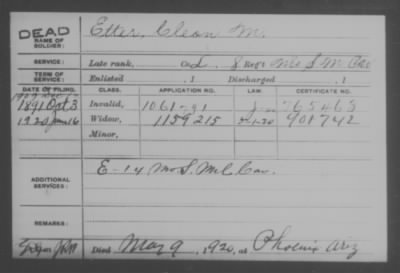 DEAD
NAME OF SOLDIER: Etter, Cleon M.
SERVICE: Late rank, Co. L 8 Reg't Mo S M Cav
TERM OF SERVICE: Enlisted , 1 Discharged , 1
DATE OF FILING. CLASS. APPLICATION NO. LAW. CERTIFICATE NO.
1891 Oct 3 Invalid, 765463
1920 June 16 Widow, 1159215 5-1-20 901742
Minor,
ADDITIONAL SERVICES: E-14 Mo S. Mil Cav.
REMARKS:
Died May 9, 1920, at Phoenix Ariz